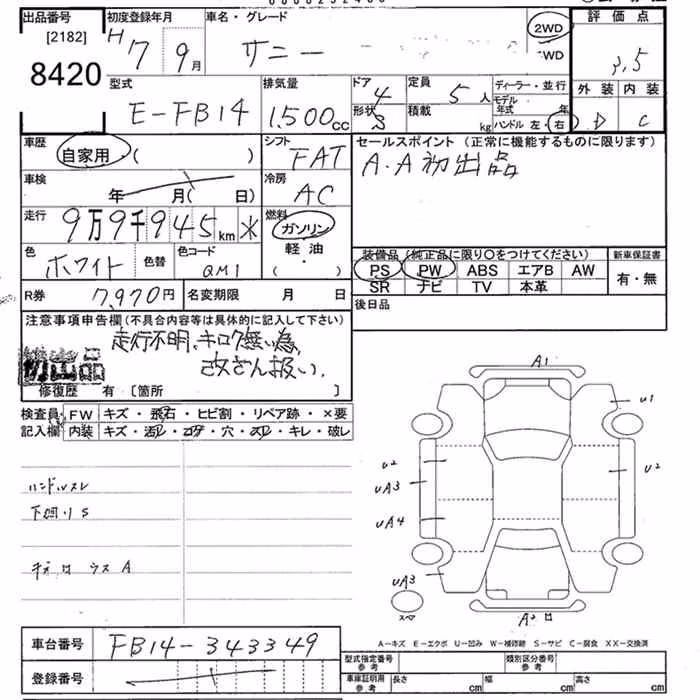 出品番号
[2182]
8420
初度登録年月
H 7 9月
車名・グレード
サニー
2WD
WD
評価点
3.5
外装 内装
D C
型式
E-FB14
排気量
1.500cc
ドア 4
形状 3
定員 5人
積載 kg
ディーラー・並行
モデル年式 年
ハンドル 左・右
車歴
自家用・( )
シフト
FAT
セールスポイント (正常に機能するものに限ります)
A.A初出品
車検
年 月( 日)
冷房
AC
走行
9万9千945km *
燃料
ガソリン
軽油
( ・ )
色
ホワイト
色替
色コード
QM1
装備品 (純正品に限り○をつけてください)
PS PW ABS エアB AW
SR ナビ TV 本革
新車保証書
有・無
R券 7,970円
名変期限 月 日
後日品
注意事項申告欄 (不具合内容等は具体的に記入して下さい)
走行不明、キロク無い為、
改ざん扱い.
初出品
修復歴 有 〔箇所 〕
検査員 FW キズ・飛石・ヒビ割・リペア跡・×要
記入欄 内装 キズ・汚レ・コゲ・穴・スレ・キレ・破レ
ハンドルスレ
下廻りS
A1
U1
U2
U2
UA3
UA4
UA3
スペア
A-キズ E-エクボ U-凹み W-補修跡 S-サビ C-腐食 XX-交換済
車台番号 FB14-343349
登録番号
型式指定番号 参考
類別区分番号 参考
車庫証明用 参考 長さ cm 幅 cm 高さ cm